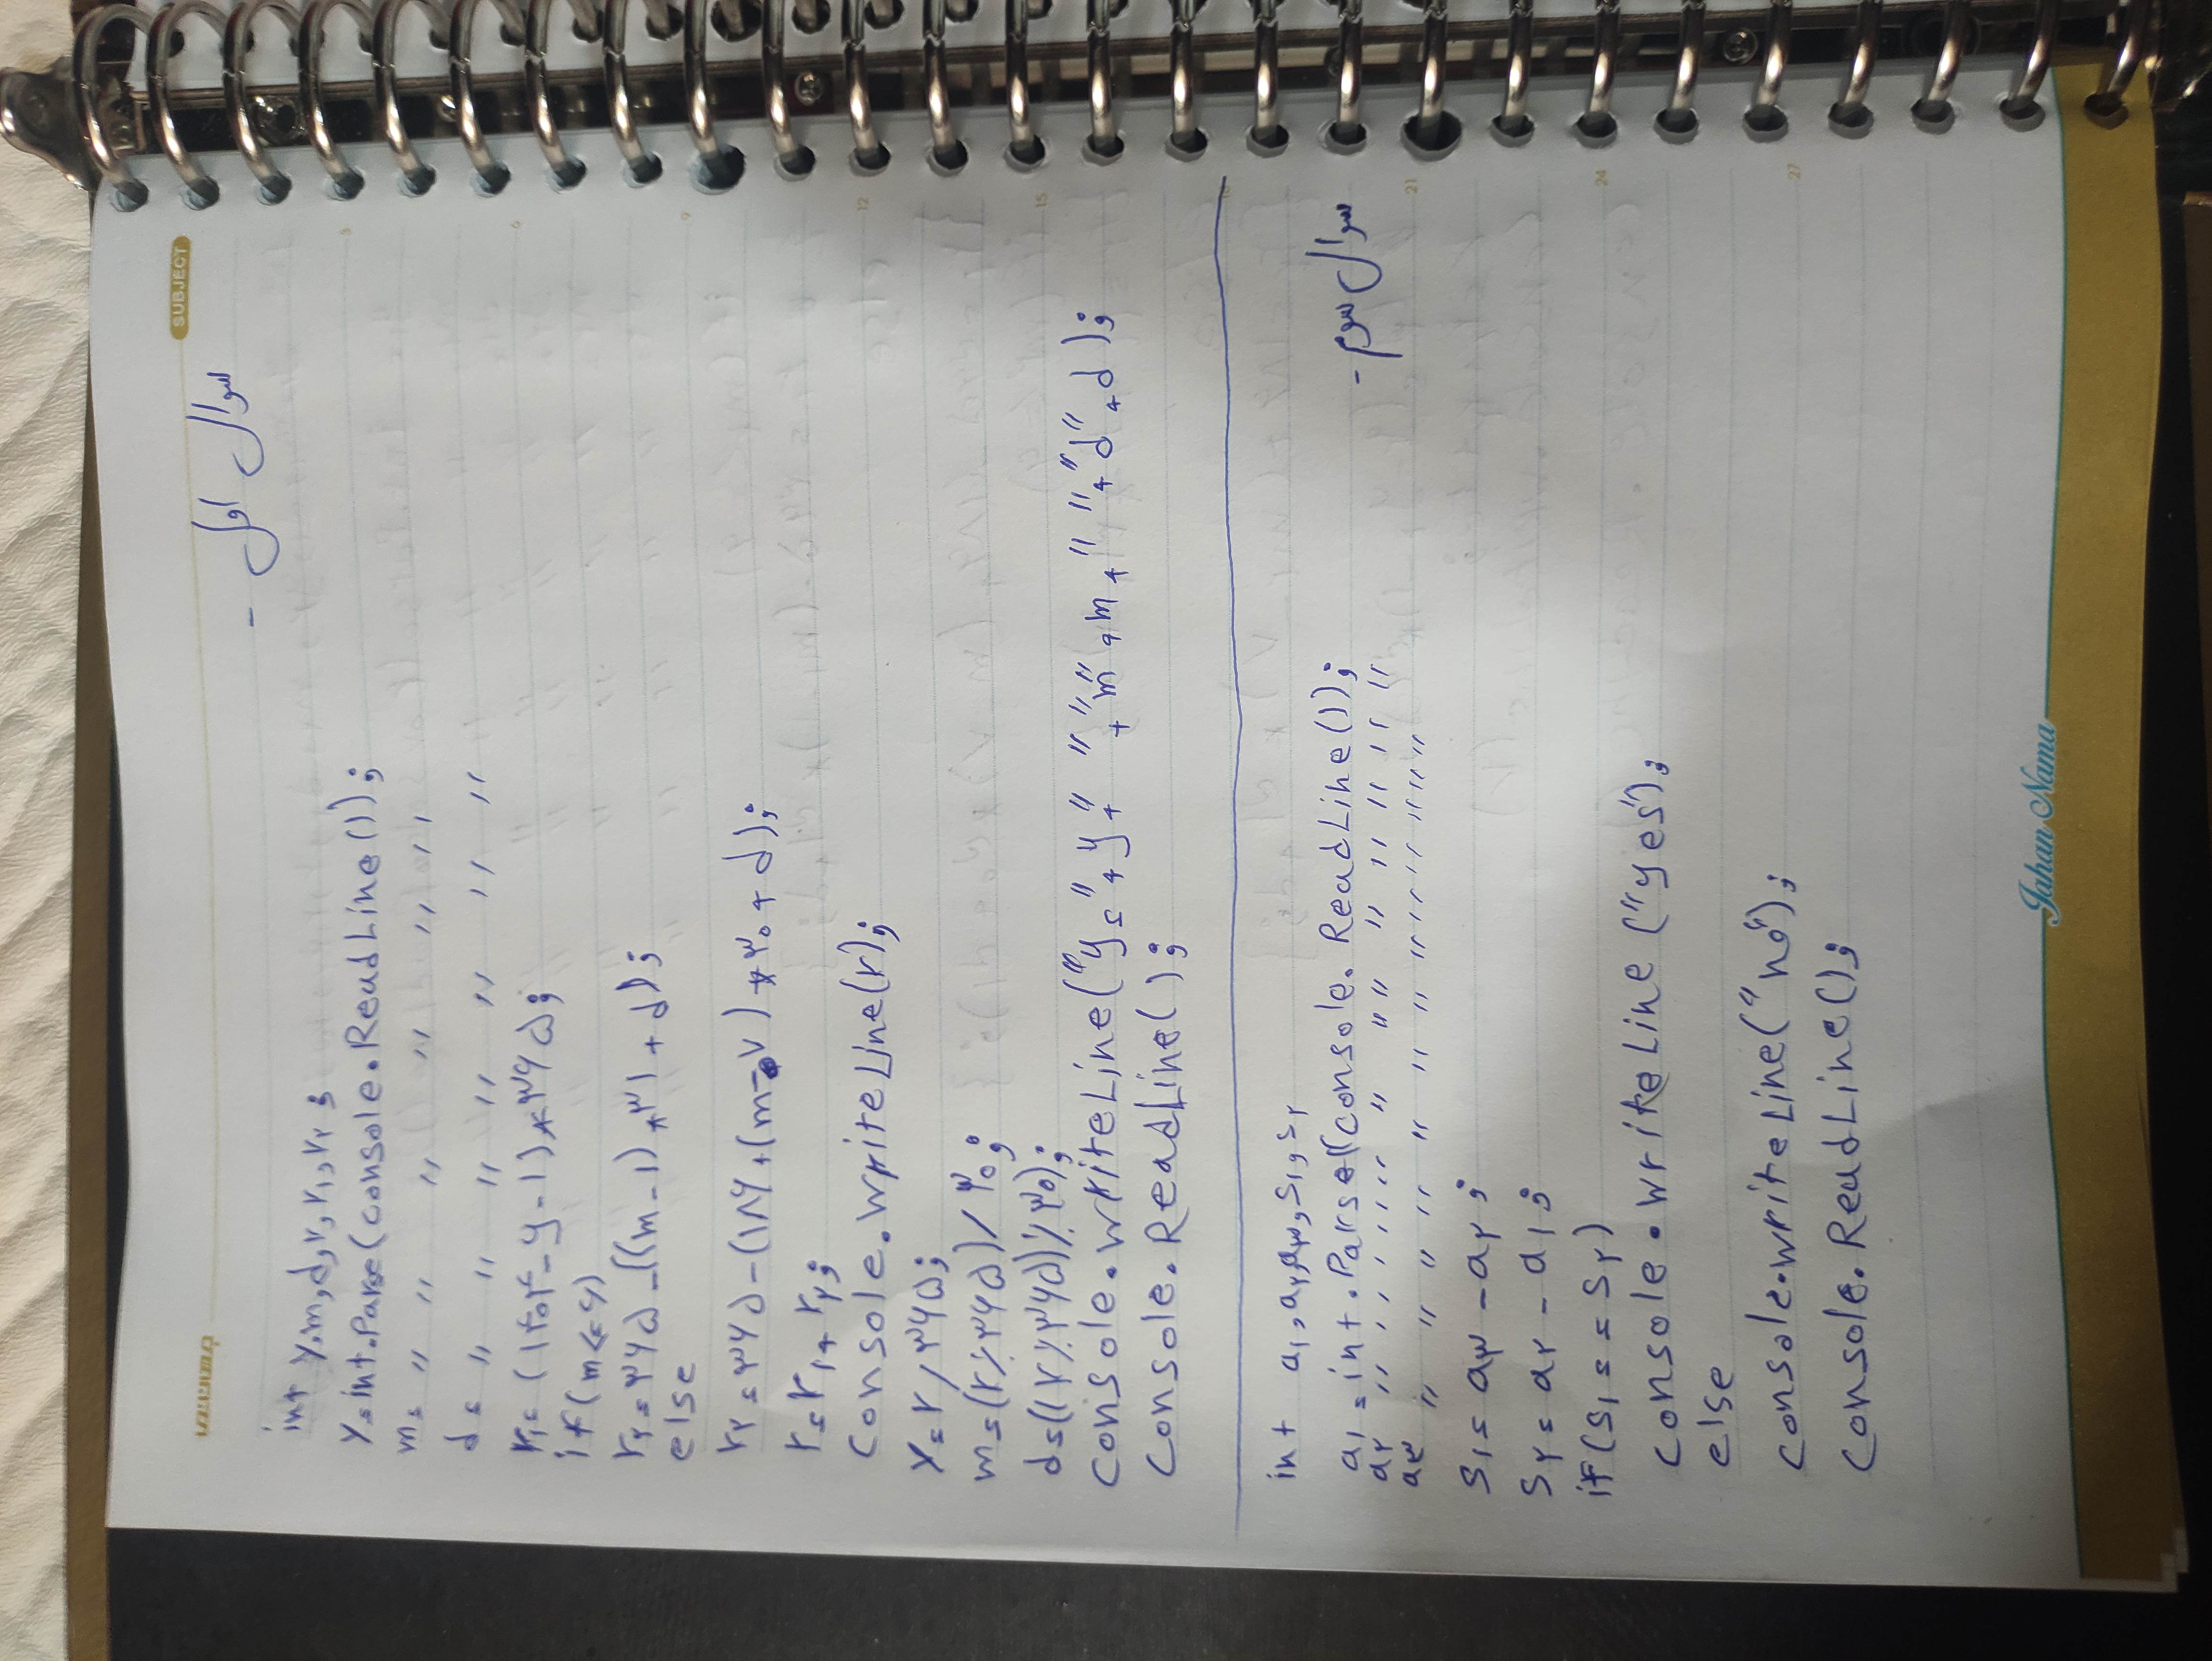 SUBJECT
سوال اول -
int y,m,d,r,r۱,r۲ ;
y=int.Parse(console.ReadLine());
m= " " " " " "
d= " " " " " " "
r۱= (۱۴۰۴-y-۱)*۳۶۵;
if(m<=۶)
r۲=۳۶۵-((m-۱)*۳۱+d);
else
r۲=۳۶۵-(۱۸۶+(m-۷)*۳۰+d);
r=r۱+r۲;
Console.WriteLine(r);
y=r/۳۶۵;
m=(r٪۳۶۵)/۳۰;
d=((r٪۳۶۵)٪۳۰);
console.writeLine("y="+y+" "+"m"+m+" "+"d"+d);
Console.ReadLine();
int a۱,a۲,a۳,s۱,s۲
سوال سوم -
a۱=int.Parse(console.ReadLine());
a۲ " " " " " " " " " " " " " "
a۳ " " " " " " " " " " " " " "
s۱= a۳-a۲;
s۲= a۲-a۱;
if(s۱==s۲)
console.writeLine("yes");
else
console.writeLine("no");
console.ReadLine();
Jahan Nama